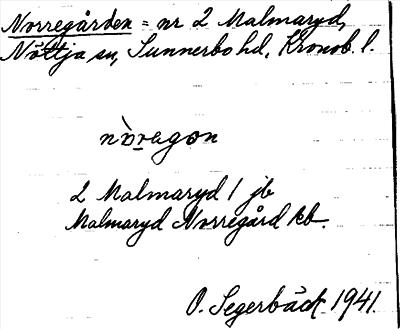 Norregården = nr 2 Malmaryd,
Nöttja sn, Sunnerbo hd, Kronob. l.
nò̱ragon
2 Malmaryd 1 jb
Malmaryd Norregård kb.
O. Segerbäck 1941.